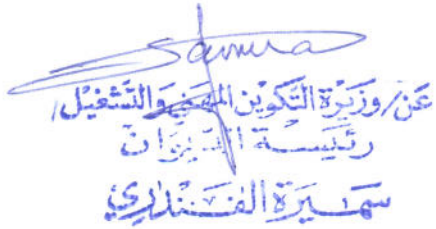 Samira
عن/وزيرة التكوين المهني والتشغيل/
رئيسة الديوان
سميرة القندري